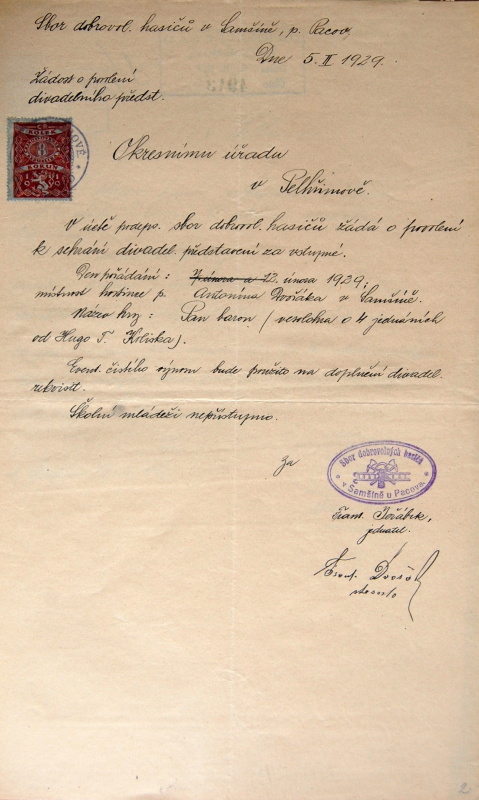 Sbor dobrovol. hasičů v Samšíně, p. Pacov
Dne 5. II. 1929.
Žádost o povolení
divadelního předst.
KOLEK
8
KORUN
Okresnímu úřadu
v Pelhřimově.
V úctě podeps. sbor dobrovol. hasičů žádá o povolení
k sehrání divadel. představení za vstupné.
Den pořádání: 12. února 1929;
místnost hostince p. Antonína Dvořáka v Samšíně.
Název hry: Pan baron (veselohra o 4 jednáních
od Hugo T. Krliska).
Event. čistého výnosu bude použito na doplnění divadel.
rekvisit.
Školní mládeži nepřístupno.
za
Sbor dobrovolných hasičů
v Samšíně u Pacova
Frant. Jeřábek,
jednatel.
Frant. Dvořák
starosta
2